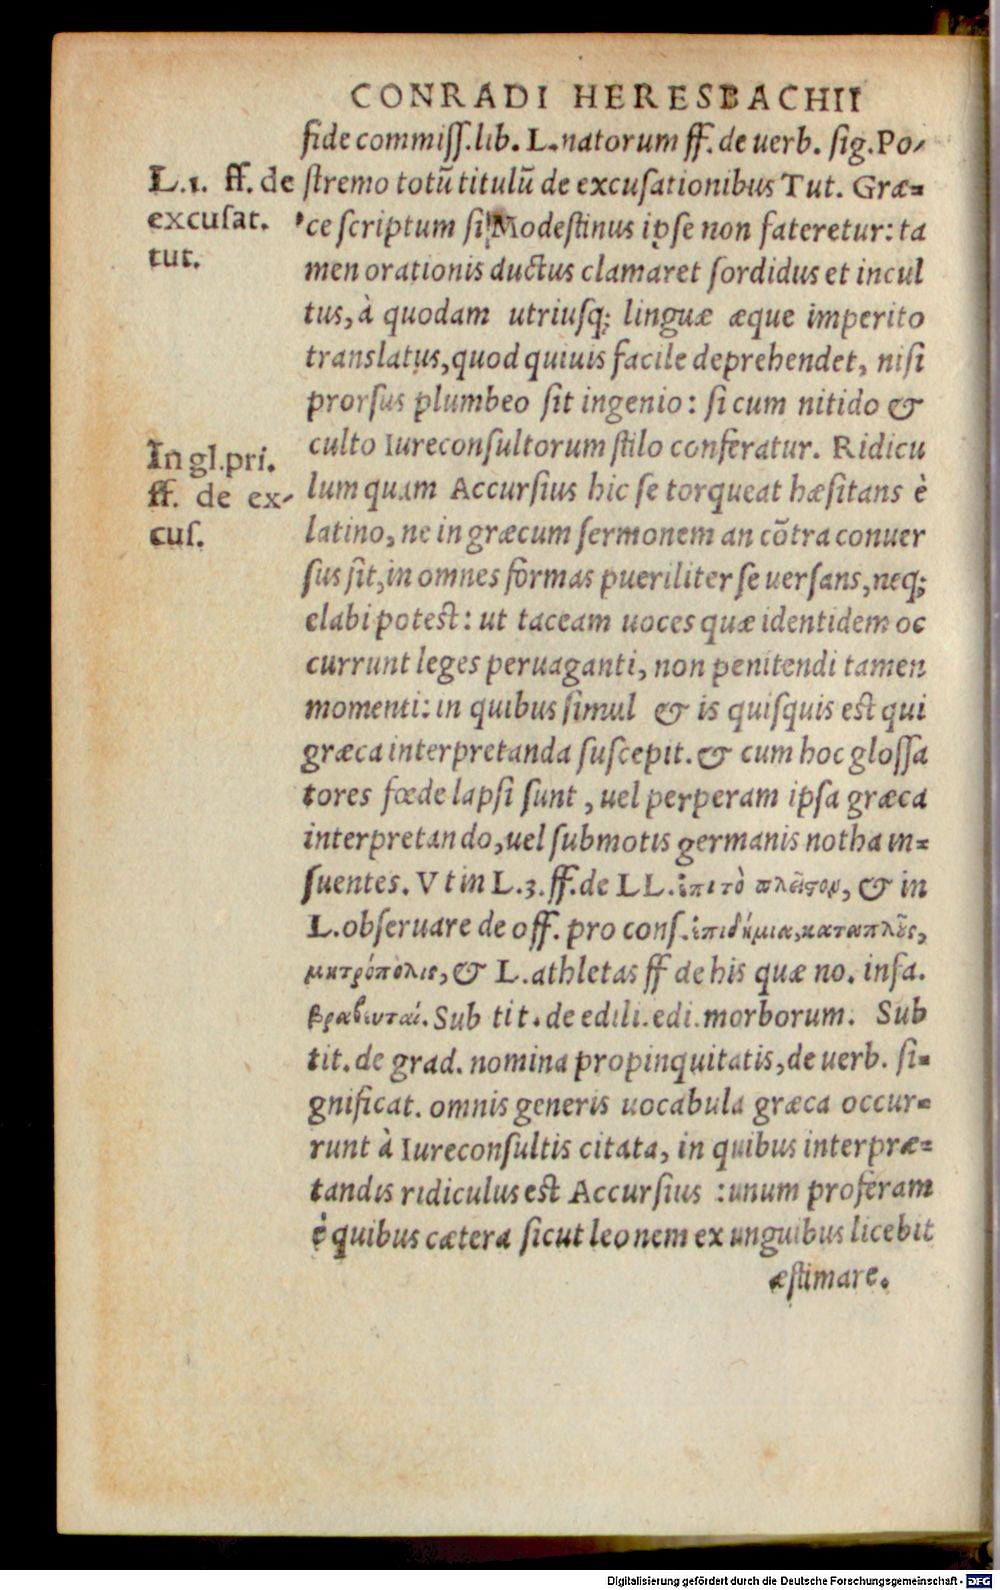 CONRADI HERESBACHII
fide commiſſ.lib. L.natorum ff. de uerb. ſig.Po-
L.1. ff. de
excuſat.
tut.
ſtremo totũ titulũ de excuſationibus Tut. Græ-
ce ſcriptum ſi Modeſtinus ipſe non fateretur: ta
men orationis ductus clamaret ſordidus et incul
tus, à quodam utriuſq; linguæ æque imperito
translatus, quod quiuis facile deprehendet, niſi
prorſus plumbeo ſit ingenio: ſi cum nitido &
culto Iureconſultorum ſtilo conferatur. Ridicu
In gl.pri.
ff. de ex-
cuſ.
lum quam Accurſius hic ſe torqueat hæſitans è
latino, ne in græcum ſermonem an cõtra conuer
ſus ſit, in omnes formas pueriliter ſe uerſans, neq;
elabi poteſt: ut taceam uoces quæ identidem oc
currunt leges peruaganti, non penitendi tamen
momenti: in quibus ſimul & is quiſquis eſt qui
græca interpretanda ſuſcepit. & cum hoc gloſſa
tores fœde lapſi ſunt, uel perperam ipſa græca
interpretando, uel ſubmotis germanis notha in-
ſuentes. Vt in L.3. ff. de LL. ἐπι τὸ πλεῖϛον, & in
L.obſeruare de off. pro conſ. ἐπιδήμια, καταπλοῦς,
μητρόπολις, & L.athletas ff de his quæ no. infa.
βραβευταί. Sub tit. de edili.edi.morborum. Sub
tit. de grad. nomina propinquitatis, de uerb. ſi-
gnificat. omnis generis uocabula græca occur-
runt à Iureconſultis citata, in quibus interpræ-
tandis ridiculus eſt Accurſius : unum proferam
è quibus cætera ſicut leonem ex unguibus licebit
æſtimare.
Digitalisierung gefördert durch die Deutsche Forschungsgemeinschaft - DFG